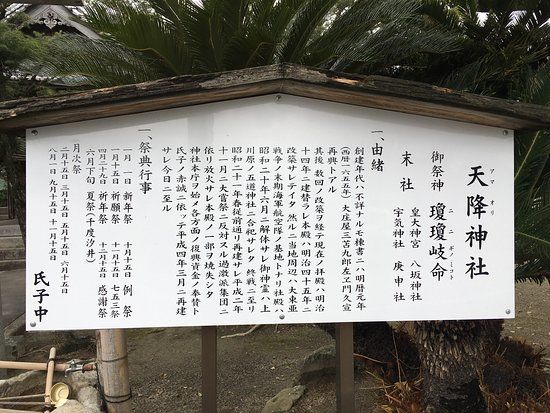 天降神社
アマオリ
御祭神 瓊瓊岐命
ニニギノミコト
末社
皇大神宮 八坂神社
宇気神社 庚申社
一、由緒
創建年代ハ不詳ナルモ棟書ニハ明暦元年
(西暦一六五五年)大庄屋三苫九郎左ヱ門久宣
再興トアル
其後 数回ノ改築ヲ経テ現在ノ拝殿ハ明治
十四年ニ建替ラレ本殿ハ明治四十五年ニ
改築サレテイタ 然ルニ当地周辺ハ大東亜
戦争ノ末期海軍航空隊ノ基地トナリ社殿ハ
昭和二十年六月ニ解体サレ御神霊ハ上
川原ノ五道神社ニ合祀サレシガ終戦ニ至リ
昭和二十一年春従前通リ再建サル平成二年
十一月ニ大嘗祭ニ反対スル過激派集団ニ
依リ放火サレ本殿ノ一部ヲ焼失シタ
神社本庁ヲ始メ各方面ノ復興資金ノ奉賛ト
氏子ノ赤誠ニ依ッテ平成四年三月ニ再建
サレ今日ニ至ル
一、祭典行事
一月一日 新年祭 十月十五日 例祭
一月十五日 祈願祭 十一月十五日 七五三祭
四月二十九日 祈年祭 十二月十五日 感謝祭
六月下旬 夏祭(千度汐井)
月次祭
二月十五日 三月十五日 五月十五日 六月十五日
八月一日 九月十五日 十一月十五日
氏子中